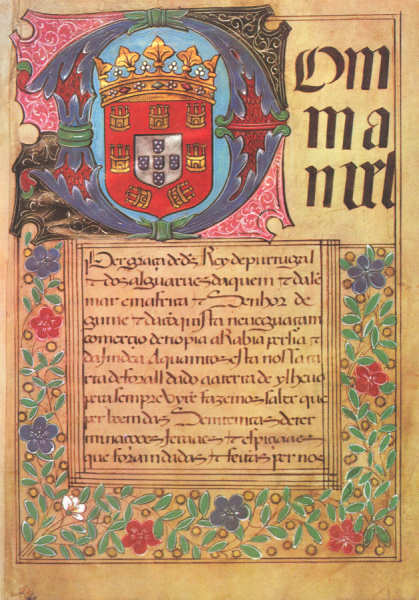 Dom
ma
nuel
Per graça de ds Rey de purtugal
τ dos alguarues daquem τ dale
mar em africa τ Senhor de
guine τ da cõquista naueguaçam
comercio detiopia aRabia persia τ
da Jndea Aquantos esta nosa car
ta de forall dado a terra de ylheuo
pera sempre virẽ fazemos saber que
per bem das Sentenças deter
minações Jeraaes τ espiçiaes
que foram dadas τ feitas per nos